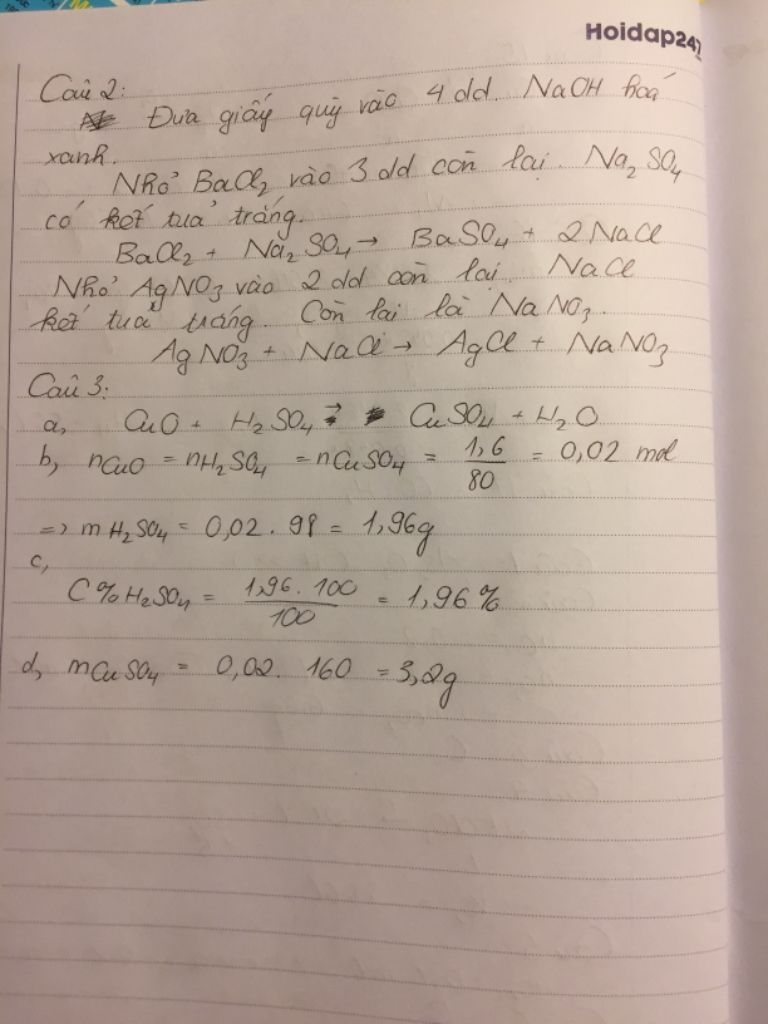 Hoidap247
Câu 2:
Đưa giấy quỳ vào 4 dd. NaOH hoá
xanh.
Nhỏ BaCl₂ vào 3 dd còn lại. Na₂SO₄
có kết tuả trắng.
BaCl₂ + Na₂SO₄ → BaSO₄ + 2NaCl
Nhỏ AgNO₃ vào 2 dd còn lại. NaCl
kết tuả trắng. Còn lại là NaNO₃.
AgNO₃ + NaCl → AgCl + NaNO₃
Câu 3:
a, CuO + H₂SO₄ → CuSO₄ + H₂O
b, nCuO = nH₂SO₄ = nCuSO₄ = 1,6/80 = 0,02 mol
=> mH₂SO₄ = 0,02 . 98 = 1,96g
c,
C%H₂SO₄ = 1,96 . 100/100 = 1,96%
d, mCuSO₄ = 0,02 . 160 = 3,2g